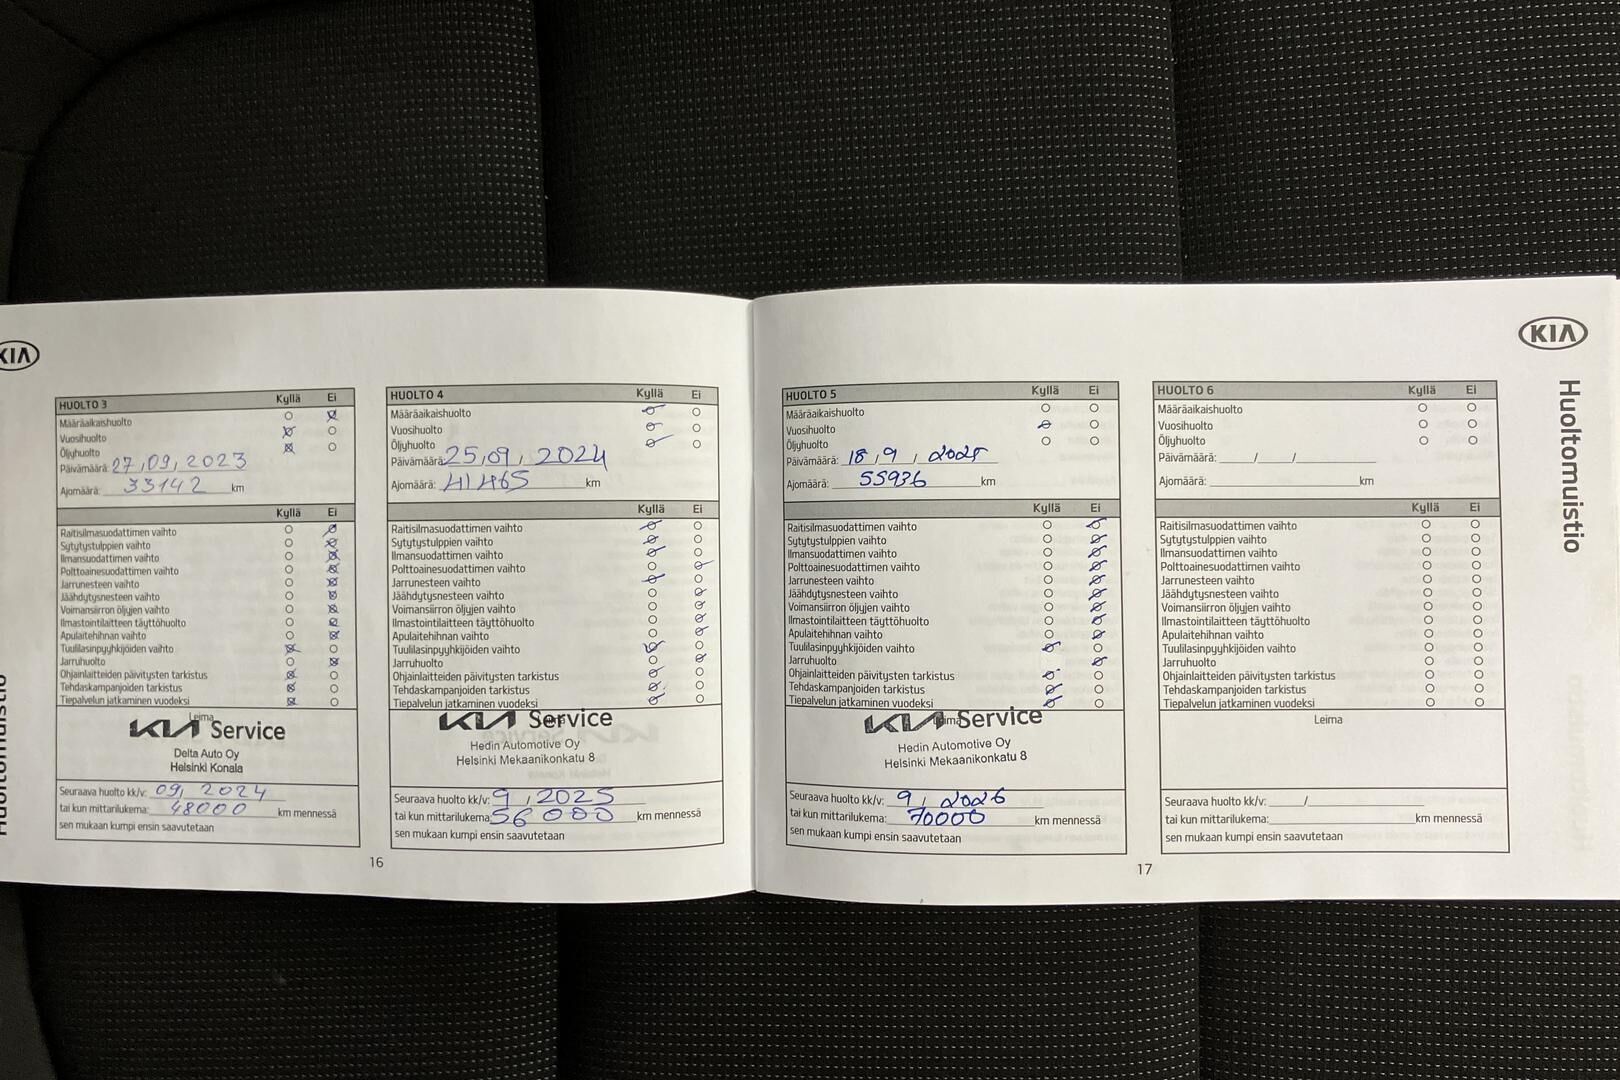 KIA
HUOLTO 3 Kyllä Ei
Määräaikaishuolto
Vuosihuolto
Öljyhuolto
Päivämäärä: 27,09,2023
Ajomäärä: 33142 km
Kyllä Ei
Raitisilmasuodattimen vaihto
Sytytystulppien vaihto
Ilmansuodattimen vaihto
Polttoainesuodattimen vaihto
Jarrunesteen vaihto
Jäähdytysnesteen vaihto
Voimansiirron öljyjen vaihto
Ilmastointilaitteen täyttöhuolto
Apulaitehihnan vaihto
Tuulilasinpyyhkijöiden vaihto
Jarruhuolto
Ohjainlaitteiden päivitysten tarkistus
Tehdaskampanjoiden tarkistus
Tiepalvelun jatkaminen vuodeksi
Leima
KIA Service
Delta Auto Oy
Helsinki Konala
Seuraava huolto kk/v: 09, 2024
tai kun mittarilukema: 48000 km mennessä
sen mukaan kumpi ensin saavutetaan
HUOLTO 4 Kyllä Ei
Määräaikaishuolto
Vuosihuolto
Öljyhuolto
Päivämäärä: 25,09, 2024
Ajomäärä: 41465 km
Kyllä Ei
Raitisilmasuodattimen vaihto
Sytytystulppien vaihto
Ilmansuodattimen vaihto
Polttoainesuodattimen vaihto
Jarrunesteen vaihto
Jäähdytysnesteen vaihto
Voimansiirron öljyjen vaihto
Ilmastointilaitteen täyttöhuolto
Apulaitehihnan vaihto
Tuulilasinpyyhkijöiden vaihto
Jarruhuolto
Ohjainlaitteiden päivitysten tarkistus
Tehdaskampanjoiden tarkistus
Tiepalvelun jatkaminen vuodeksi
KIA Service
Hedin Automotive Oy
Helsinki Mekaanikonkatu 8
Seuraava huolto kk/v: 9, 2025
tai kun mittarilukema: 56000 km mennessä
sen mukaan kumpi ensin saavutetaan
16
HUOLTO 5 Kyllä Ei
Määräaikaishuolto
Vuosihuolto
Öljyhuolto
Päivämäärä: 18,9, 2025
Ajomäärä: 55936 km
Kyllä Ei
Raitisilmasuodattimen vaihto
Sytytystulppien vaihto
Ilmansuodattimen vaihto
Polttoainesuodattimen vaihto
Jarrunesteen vaihto
Jäähdytysnesteen vaihto
Voimansiirron öljyjen vaihto
Ilmastointilaitteen täyttöhuolto
Apulaitehihnan vaihto
Tuulilasinpyyhkijöiden vaihto
Jarruhuolto
Ohjainlaitteiden päivitysten tarkistus
Tehdaskampanjoiden tarkistus
Tiepalvelun jatkaminen vuodeksi
KIA Service
Hedin Automotive Oy
Helsinki Mekaanikonkatu 8
Seuraava huolto kk/v: 9, 2026
tai kun mittarilukema: 70000 km mennessä
sen mukaan kumpi ensin saavutetaan
HUOLTO 6 Kyllä Ei
Määräaikaishuolto
Vuosihuolto
Öljyhuolto
Päivämäärä: ____/____/________
Ajomäärä: ____________ km
Kyllä Ei
Raitisilmasuodattimen vaihto
Sytytystulppien vaihto
Ilmansuodattimen vaihto
Polttoainesuodattimen vaihto
Jarrunesteen vaihto
Jäähdytysnesteen vaihto
Voimansiirron öljyjen vaihto
Ilmastointilaitteen täyttöhuolto
Apulaitehihnan vaihto
Tuulilasinpyyhkijöiden vaihto
Jarruhuolto
Ohjainlaitteiden päivitysten tarkistus
Tehdaskampanjoiden tarkistus
Tiepalvelun jatkaminen vuodeksi
Leima
Seuraava huolto kk/v: ____/________
tai kun mittarilukema: ____________ km mennessä
sen mukaan kumpi ensin saavutetaan
17
KIA
Huoltomuistio